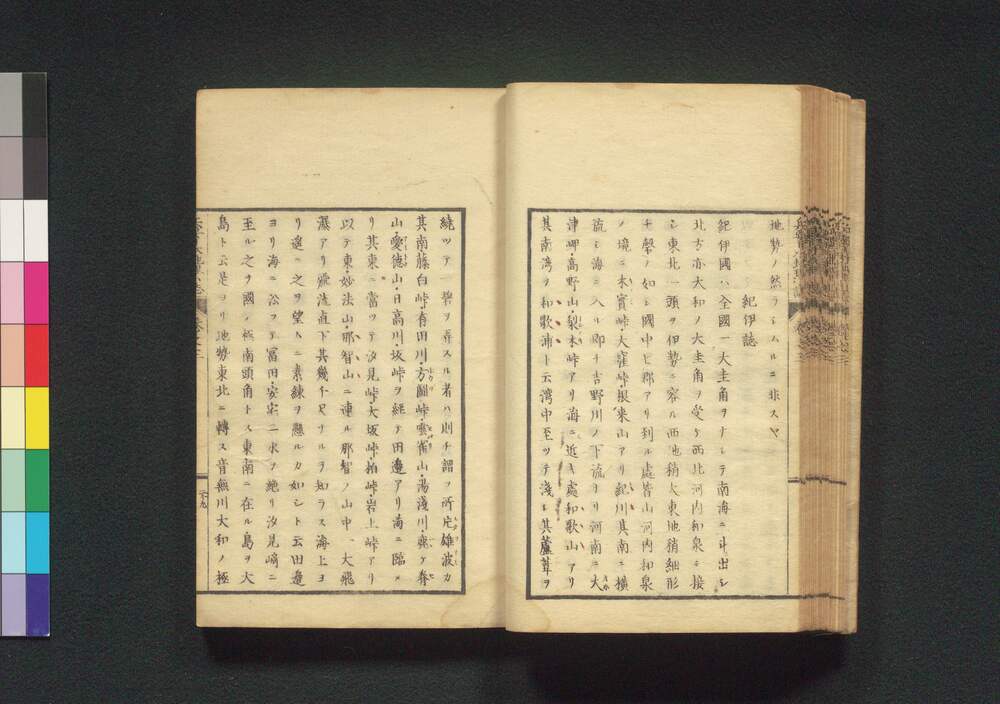 地勢ノ然ラシムルニ非スヤ
紀伊誌
紀伊國ハ全國一大圭角ヲナシテ南海ニ斗出シ
北方亦大和ノ大圭角ヲ受ケ西北河内和泉ニ接
シ東北一頭ヲ伊勢ニ容ル西地稍大東地稍細形
チ磬ノ如シ國中七郡アリ到ル處皆山河内和泉
ノ境ニ木實峠大窪峠根来山アリ紀川其南ニ横
流シ海ニ入ル即チ吉野川ノ下流ナリ河南ニ大
津岬高野山梨木峠アリ海ニ近キ處和歌山アリ
其南湾ヲ和歌浦ト云湾中至ツテ淺シ其蘆葦ヲ
繞ツテ碧ヲ弄スル者ハ則チ謂フ所片雄波カ
其南藤白峠有田川方圖峠雲雀山湯淺川鹿ケ脊
山愛徳山日高川坂峠ヲ経テ田邊アリ海ニ臨メ
リ其東ニ當ツテ汐見峠大坂峠拍峠岩上峠アリ
以テ東妙法山那智山ニ連ル那智ノ山中一大飛
瀑アリ飛流直下其幾千尺ナルヲ知ラス海上ヨ
リ遥ニ之ヲ望メハ素練ヲ懸ルカ如シト云田邊
ヨリ海ニ沿フテ富田安宅二水ヲ絶リ汐見崎ニ
至ル之ヲ國ノ極南頭角トス東南ニ在ル島ヲ大
島ト云是ヨリ地勢東北ニ轉ス音無川大和ノ極
二十九